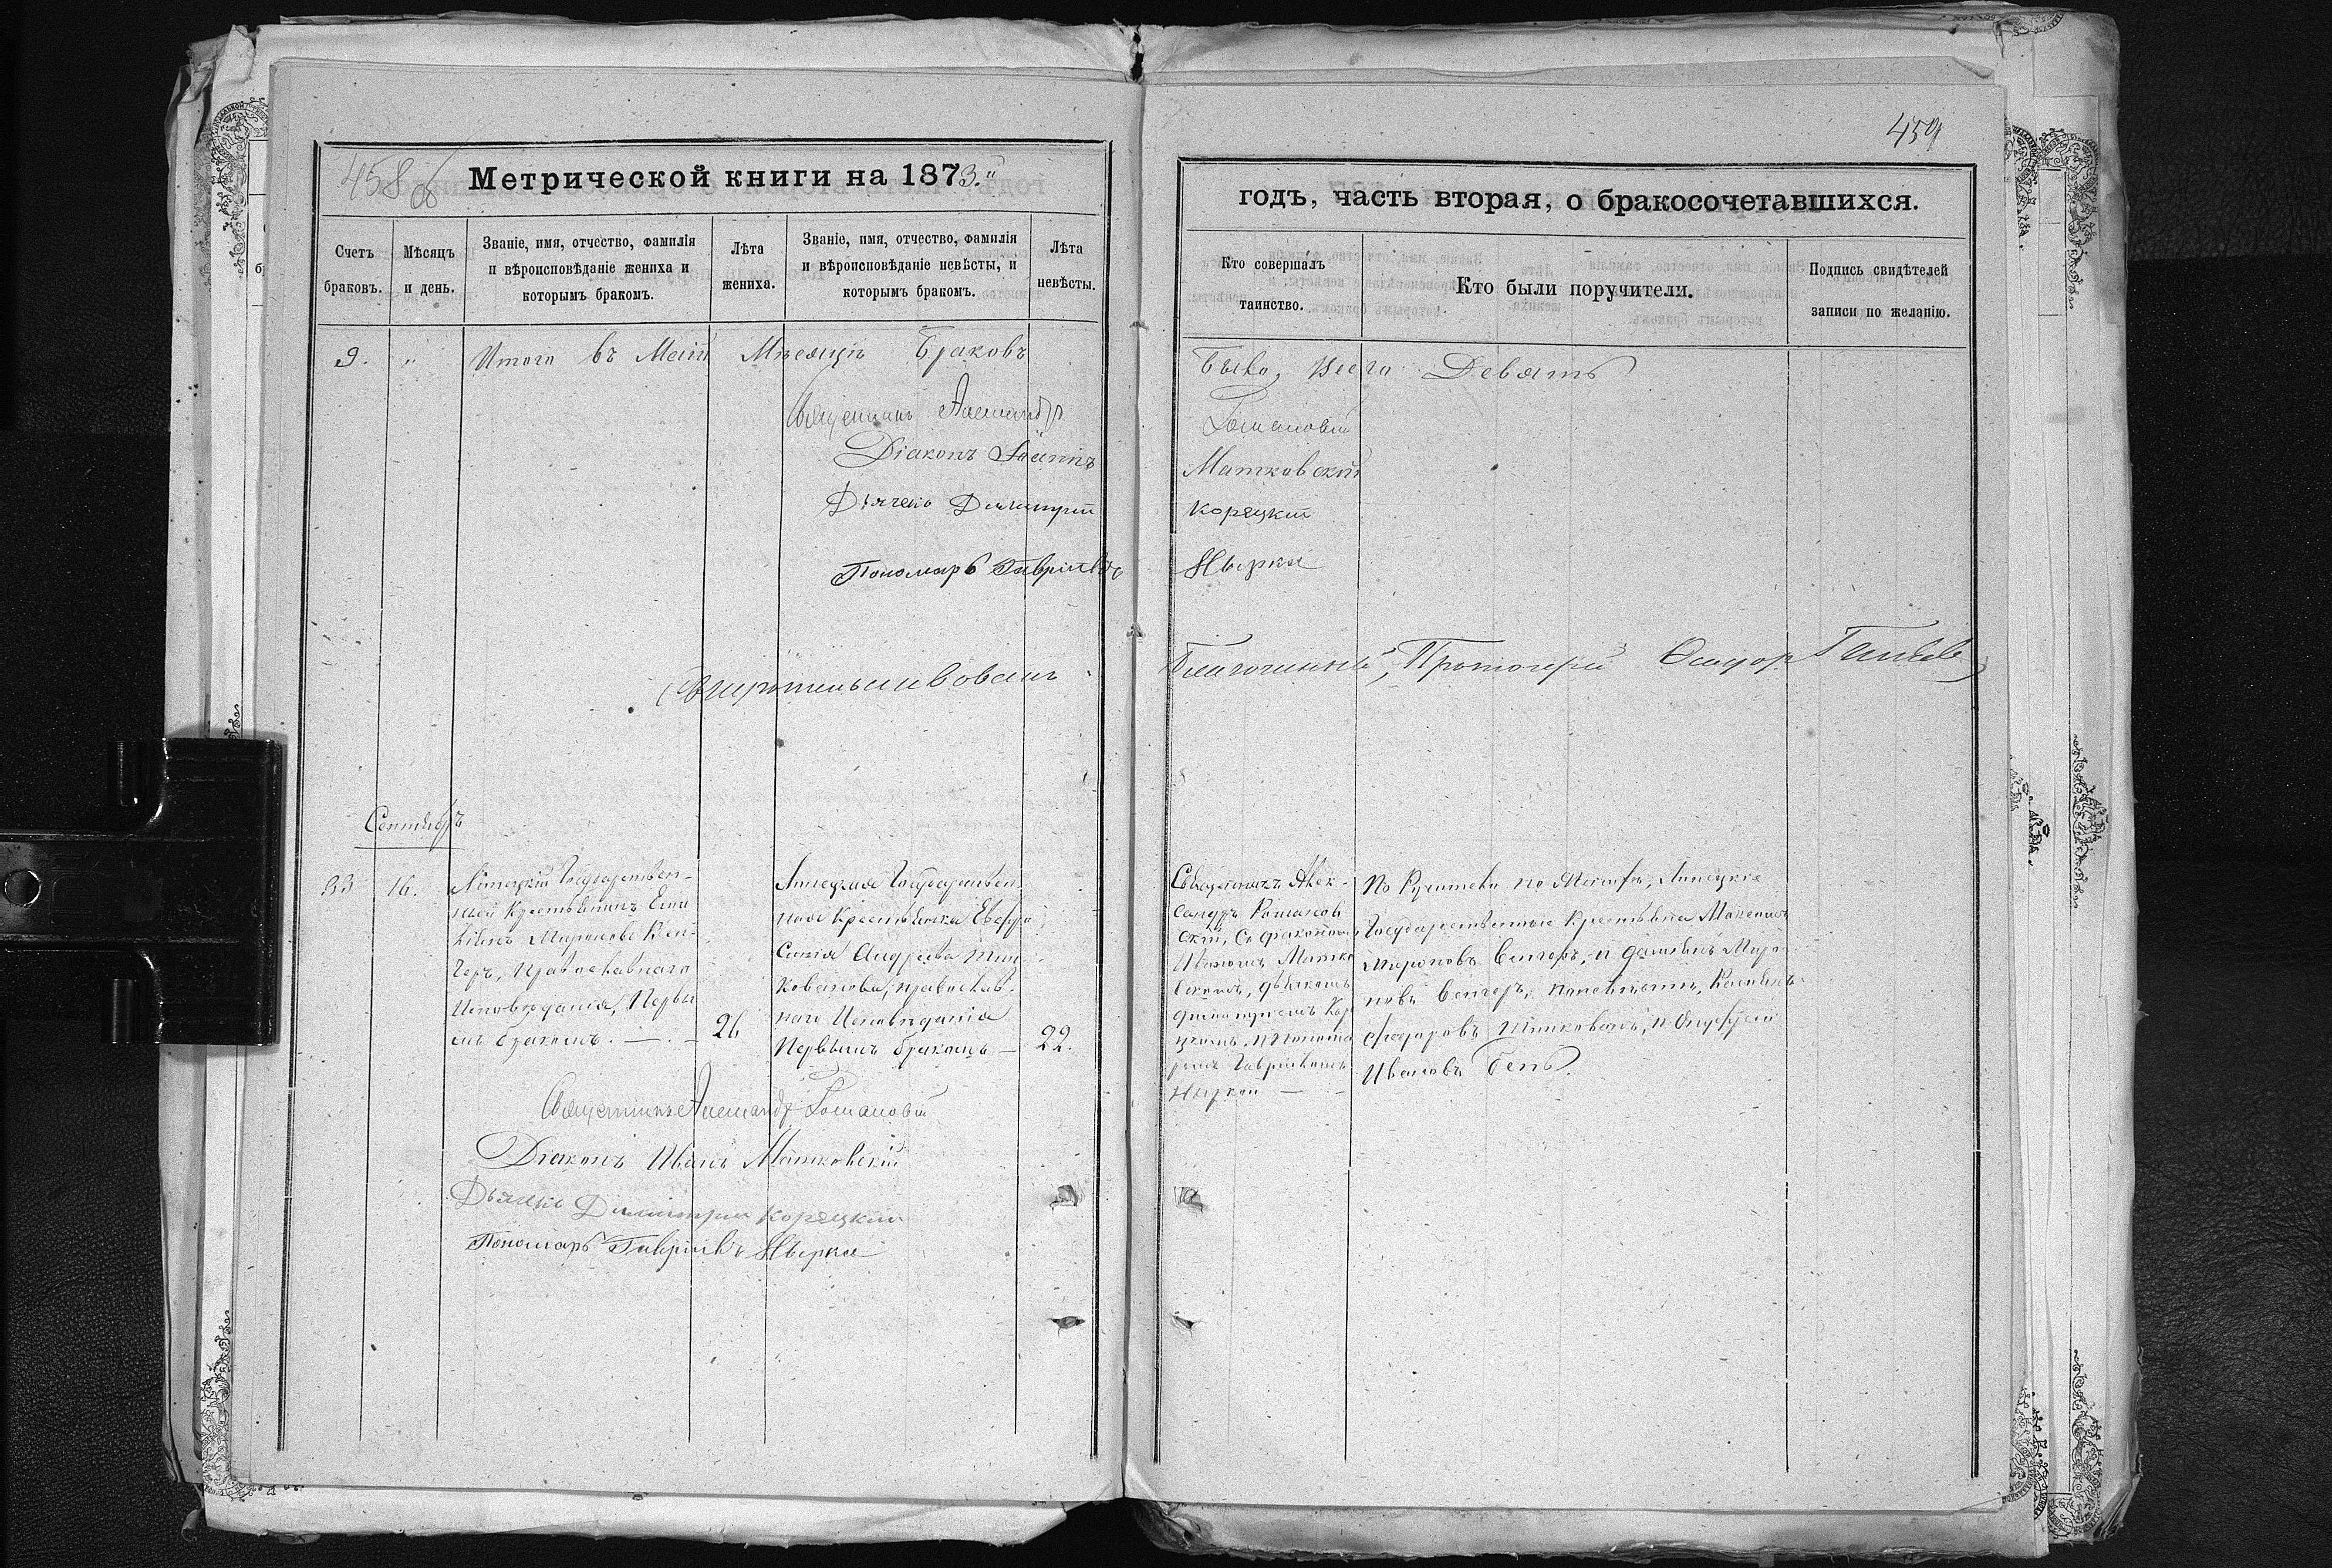 458 об
Метрической книги на 1873.
Счетъ браковъ.
Мѣсяцъ и день.
Званіе, имя, отчество, фамилія и вѣроисповѣданіе жениха и которымъ бракомъ.
Лѣта жениха.
Званіе, имя, отчество, фамилія и вѣроисповѣданіе невѣсты, и которымъ бракомъ.
Лѣта невѣсты.
9. " Итого въ Маѣ Мѣсяцѣ Браковъ
Священникъ Александръ
Діаконъ Іоаннъ
Дьячекъ Димитрій
Пономарь Гавріилъ
Свидѣтельствовалъ
Сентябрь
33 16.
Липецкій Государствен-
ный Крестьянинъ
Мироновъ Вен-
геръ, Православнаго
Исповѣданія, Первы
мъ бракомъ. — 26
Липецкая Государствен-
ная Крестьянка Евфро
синія Андреева Тим-
кованова, православ-
наго Исповѣданія
Первымъ бракомъ — 22.
Священникъ Александръ Романовскій
Діаконъ Иванъ Матковскій
Дьячекъ Димитрій Корецкій
Пономарь Гавріилъ Нырка
459
годъ, часть вторая, о бракосочетавшихся.
Кто совершалъ таинство.
Кто были поручители.
Подпись свидѣтелей записи по желанію.
Было, Всего Девять
Романовскій
Матковскій
Корецкій
Нырка
Благочинный, Протоіерей Ѳеодоръ
Священникъ Алек-
сандръ Романов
скій, Съ діакономъ
Иваномъ Матко
вскимъ, дьячкомъ
Димитріемъ Кор
ецкимъ, и Понома
ремъ Гавріиломъ
Ныркой —
По Женихѣ, Липецкіе
Государственные Крестьяне
Мироновъ Венгеръ, и Миро-
новъ Венгеръ, по невѣстѣ,
Федоровъ и Андрей
Ивановъ